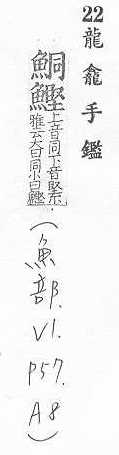 22 龍龕手鑑
鮦鰹上音同下音堅尔
雅云大曰同小曰鰹
(魚部. V1. P57. A8)